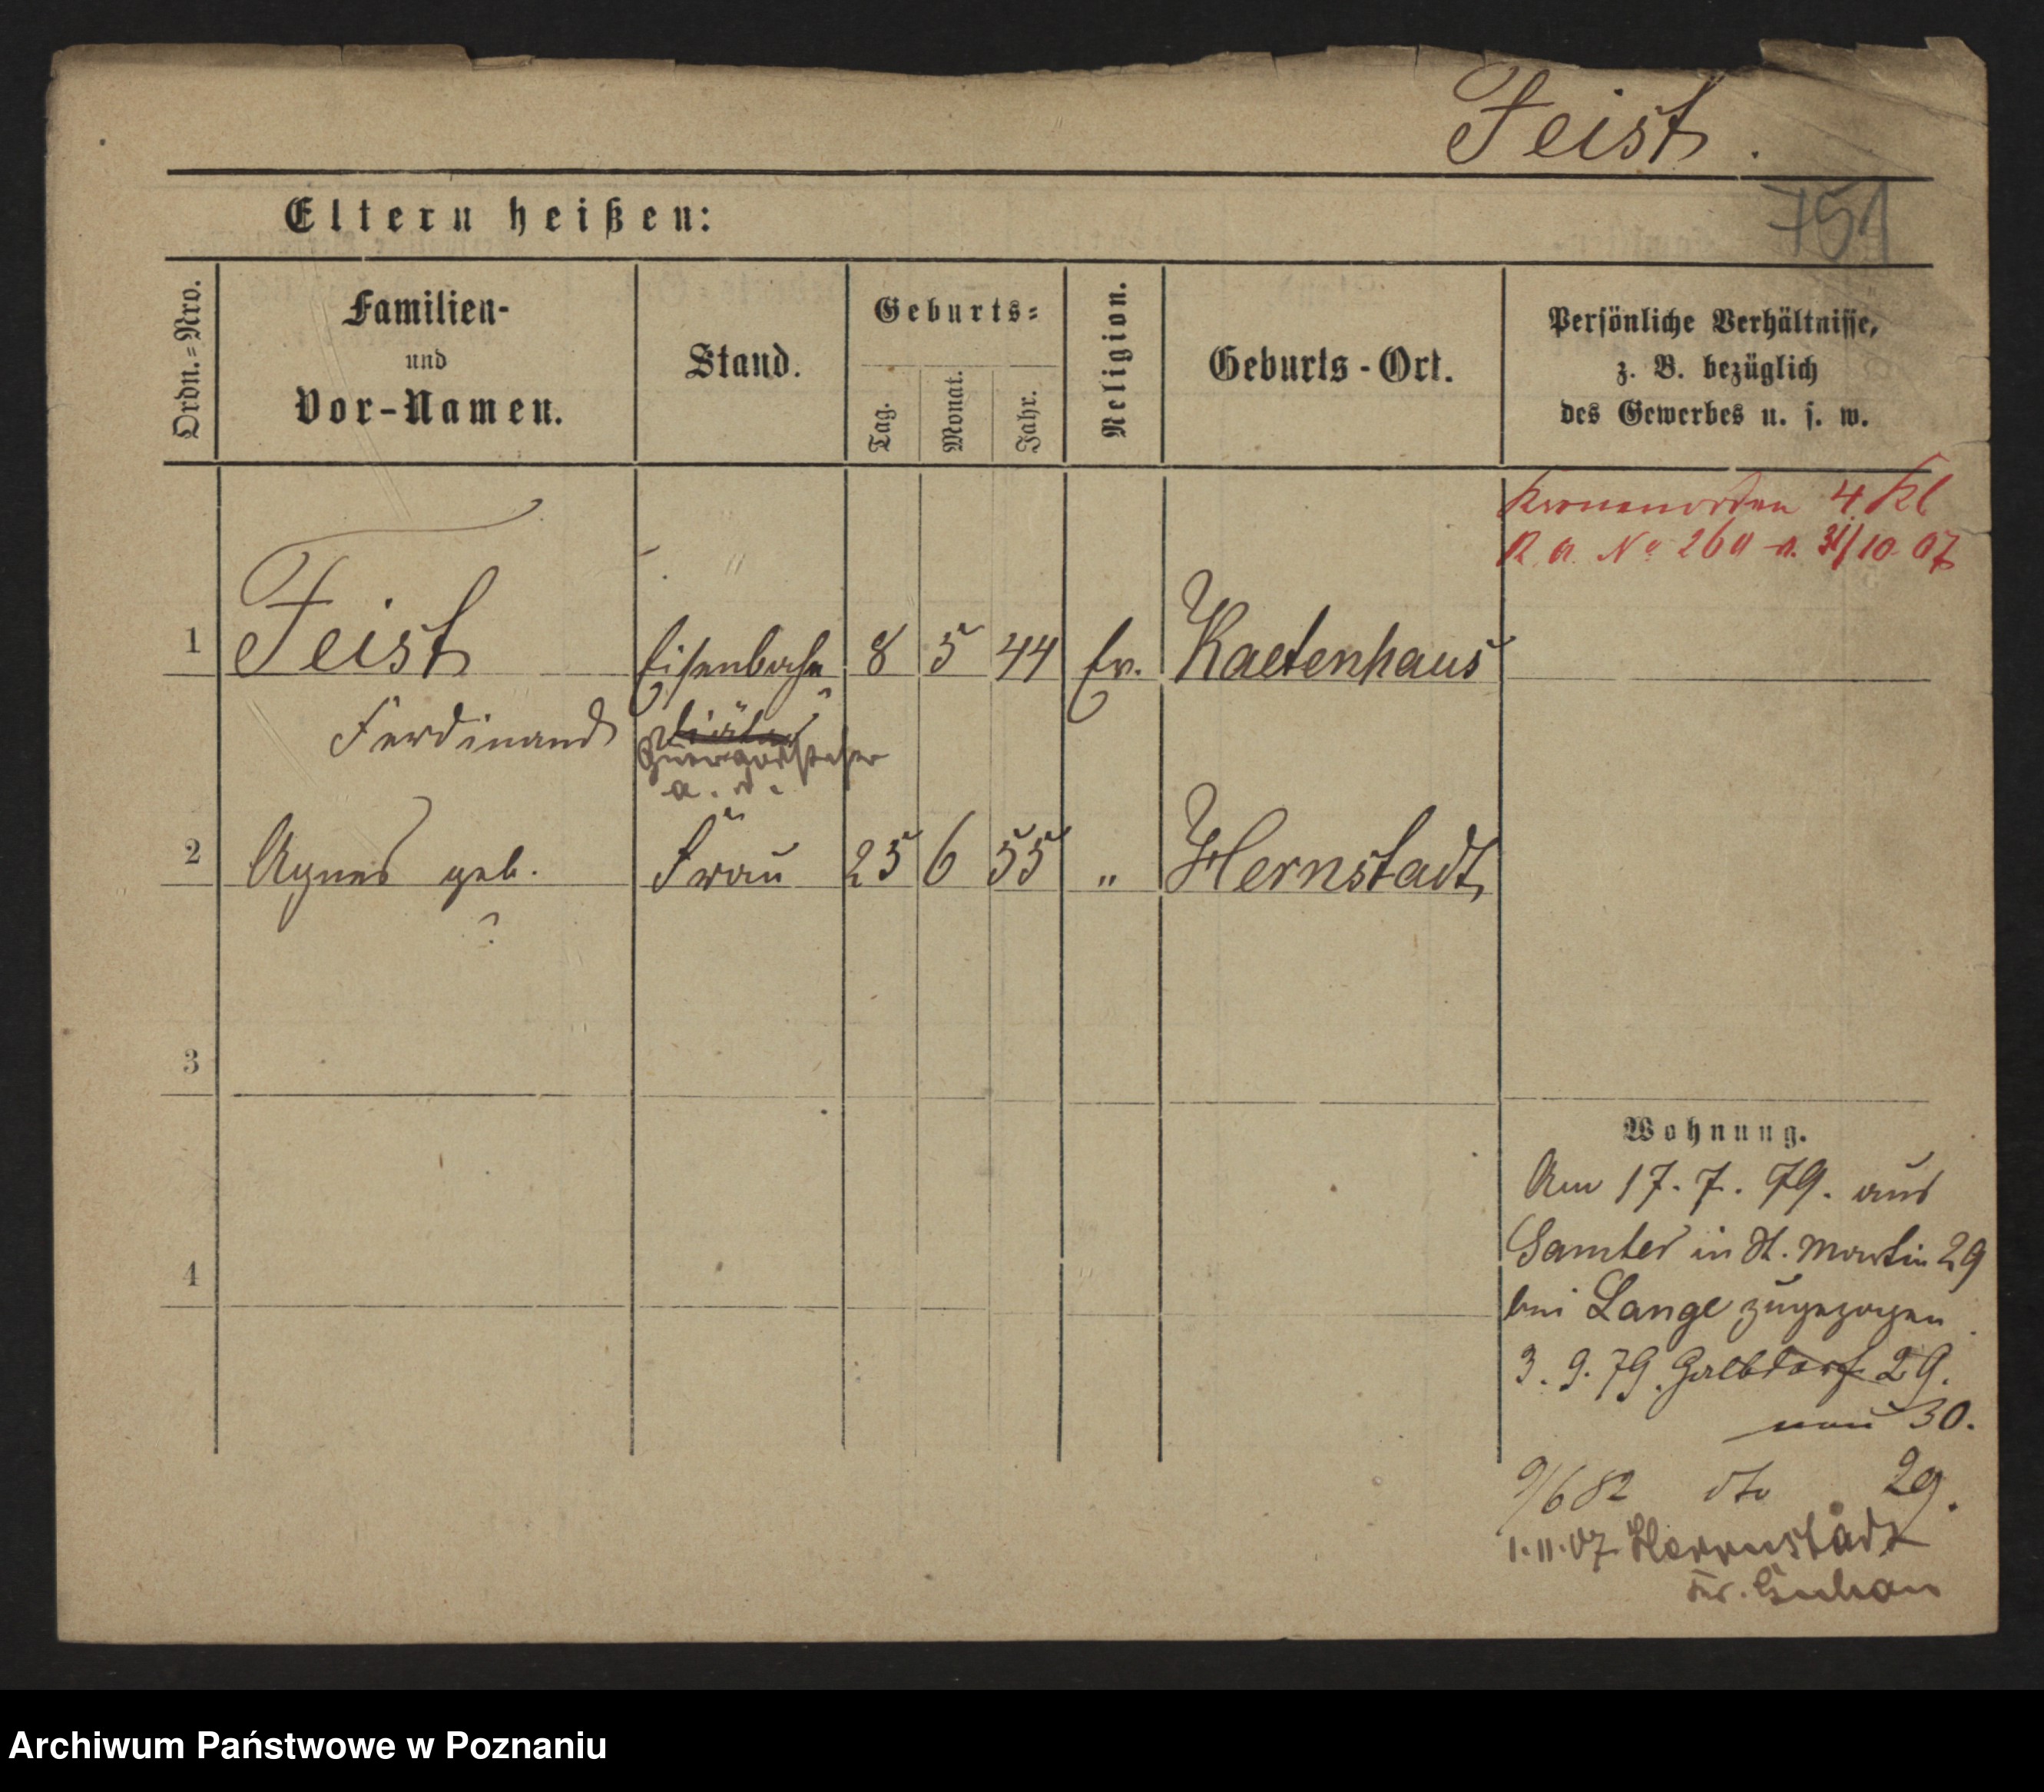 Feist.
751
Eltern heißen:
Ordn.=Nro.
Familien-
und
Vor-Namen.
Stand.
Geburts=
Tag.
Monat.
Jahr.
Religion.
Geburts-Ort.
Persönliche Verhältnisse,
z. B. bezüglich
des Gewerbes u. s. w.
Kronenorden 4 Kl
R. A. No 260 v. 31/10 07
1 Feist Eisenbahn 8 5 44 Ev. Kaetenhaus
Ferdinand Diätar
Gütervorsteher
a. D.
2 Agnes geb. Frau 25 6 55 " Hernstadt
?
3
Wohnung.
Am 17. 7. 79. aus
Samter in St. Martin 29
4
bei Lange zugezogen
3. 9. 79. 29.
neu 30.
9/6 82 dto 29.
1.11.07 Herrnstadt
Kr. Guhrau
Archiwum Państwowe w Poznaniu